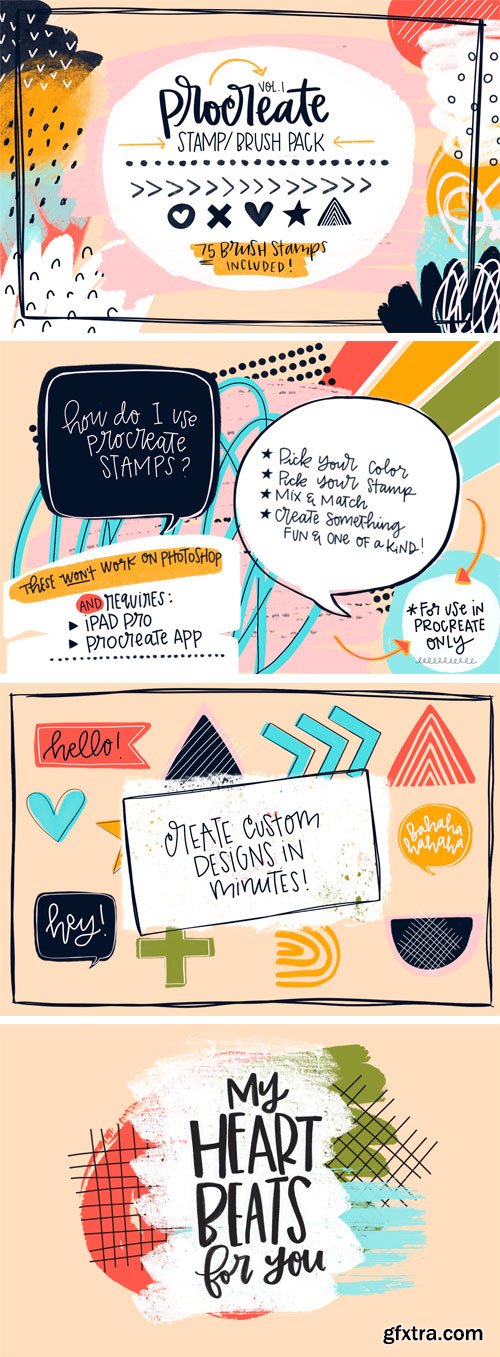 VOL.1
Procreate
STAMP/BRUSH PACK
75 BRUSH STAMPS
INCLUDED!
how do I use
PROCREATE
STAMPS?
★ Pick Your Color
★ Pick Your Stamp
★ Mix & Match
★ Create Something
FUN & ONE OF A KIND!
THESE WON'T WORK ON PHOTOSHOP
AND REQUIRES:
▶ iPAD PRO
▶ PROCREATE APP
*FOR USE IN
PROCREATE
ONLY
hello!
CREATE CUSTOM
DESIGNS IN
minutes!
bahaha
hahaha
hey!
My
HEART
BEATS
for you
gfxtra.com